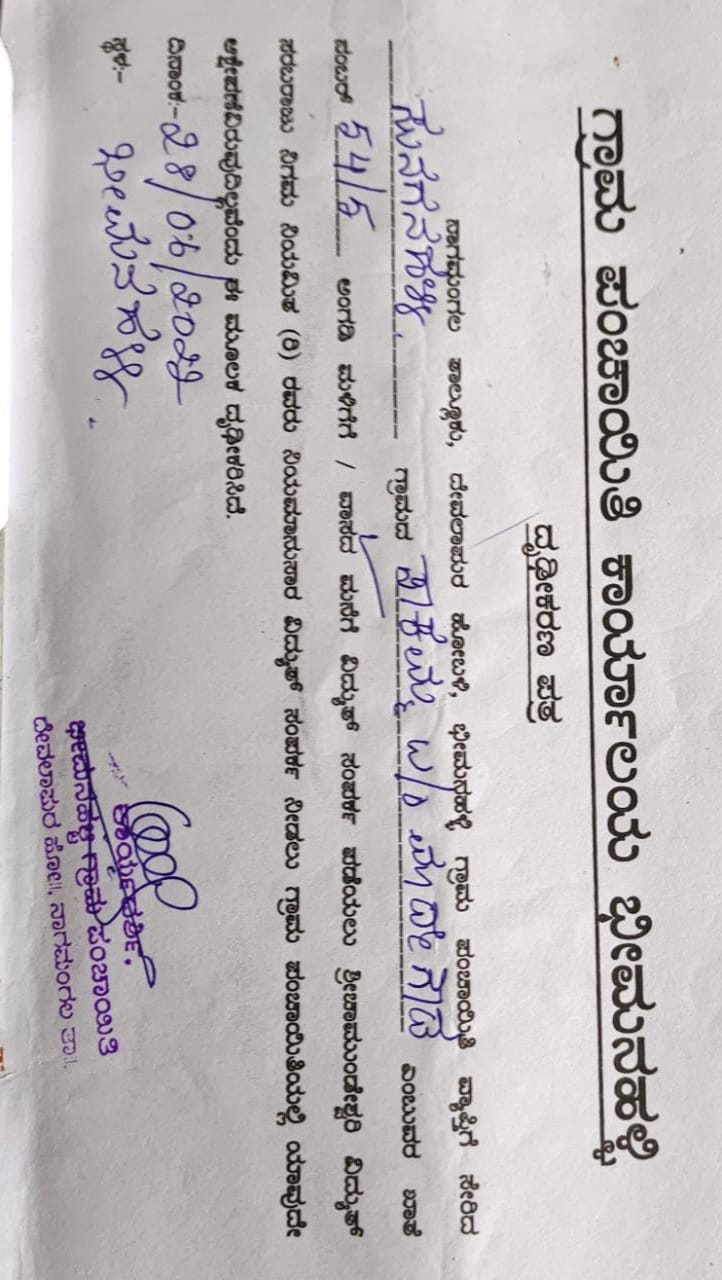 ಗ್ರಾಮ ಪಂಚಾಯಿತಿ ಕಾರ್ಯಾಲಯ ಭೀಮನಹಳ್ಳಿ
ದೃಢೀಕರಣ ಪತ್ರ
ನಾಗಮಂಗಲ ತಾಲ್ಲೂಕು, ದೇವಲಾಪುರ ಹೋಬಳಿ, ಭೀಮನಹಳ್ಳಿ ಗ್ರಾಮ ಪಂಚಾಯಿತಿ ವ್ಯಾಪ್ತಿಗೆ ಸೇರಿದ
ಗ್ರಾಮದ W/o ಮಾದೇಗೌಡ ಎಂಬುವರ ಖಾತೆ
ನಂಬರ್ 54/5 ಅಂಗಡಿ ಮಳಿಗೆಗೆ / ವಾಸದ ಮನೆಗೆ ವಿದ್ಯುತ್ ಸಂಪರ್ಕ ಪಡೆಯಲು ಶ್ರೀಚಾಮುಂಡೇಶ್ವರಿ ವಿದ್ಯುತ್
ಸರಬರಾಜು ನಿಗಮ ನಿಯಮಿತ (ರಿ) ರವರು ನಿಯಮಾನುಸಾರ ವಿದ್ಯುತ್ ಸಂಪರ್ಕ ನೀಡಲು ಗ್ರಾಮ ಪಂಚಾಯಿತಿಯಲ್ಲಿ ಯಾವುದೇ
ಆಕ್ಷೇಪಣೆವಿರುವುದಿಲ್ಲವೆಂದು ಈ ಮೂಲಕ ದೃಢೀಕರಿಸಿದೆ.
ದಿನಾಂಕ:- 28/06/2022
ಸ್ಥಳ:- ಭೀಮನಹಳ್ಳಿ
ಕಾರ್ಯದರ್ಶಿ.
ಭೀಮನಹಳ್ಳಿ ಗ್ರಾಮ ಪಂಚಾಯಿತಿ
ದೇವಲಾಪುರ ಹೋ||. ನಾಗಮಂಗಲ ತಾ||.